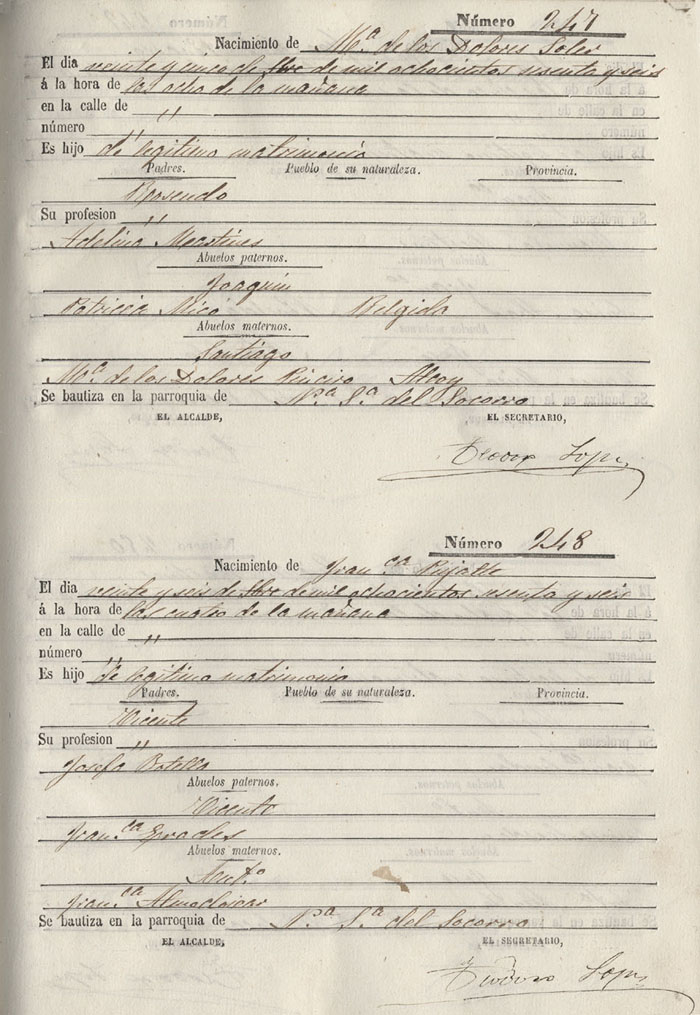 Número 247
Nacimiento de Mª de los Dolores Soler
El dia veinte y cinco de de mil ochocientos sesenta y seis
á la hora de las ocho de la mañana
en la calle de "
número "
Es hijo de legitimo matrimonio
Padres. Pueblo de su naturaleza. Provincia.
Rosendo
Su profesion "
Adelina
Abuelos paternos.
Joaquin
Patricia Micó Belgida
Abuelos maternos.
Santiago
Mª de los Dolores Alcoy
Se bautiza en la parroquia de Nª Sª del Socorro
EL ALCALDE, EL SECRETARIO,
Número 248
Nacimiento de Franca
El dia veinte y seis de de mil ochocientos sesenta y seis
á la hora de las cuatro de la mañana
en la calle de "
número "
Es hijo de legitimo matrimonio
Padres. Pueblo de su naturaleza. Provincia.
Vicente
Su profesion "
Josefa Botella
Abuelos paternos.
Vicente
Franca
Abuelos maternos.
Franca
Se bautiza en la parroquia de Nª Sª del Socorro
EL ALCALDE, EL SECRETARIO,
Teodoro